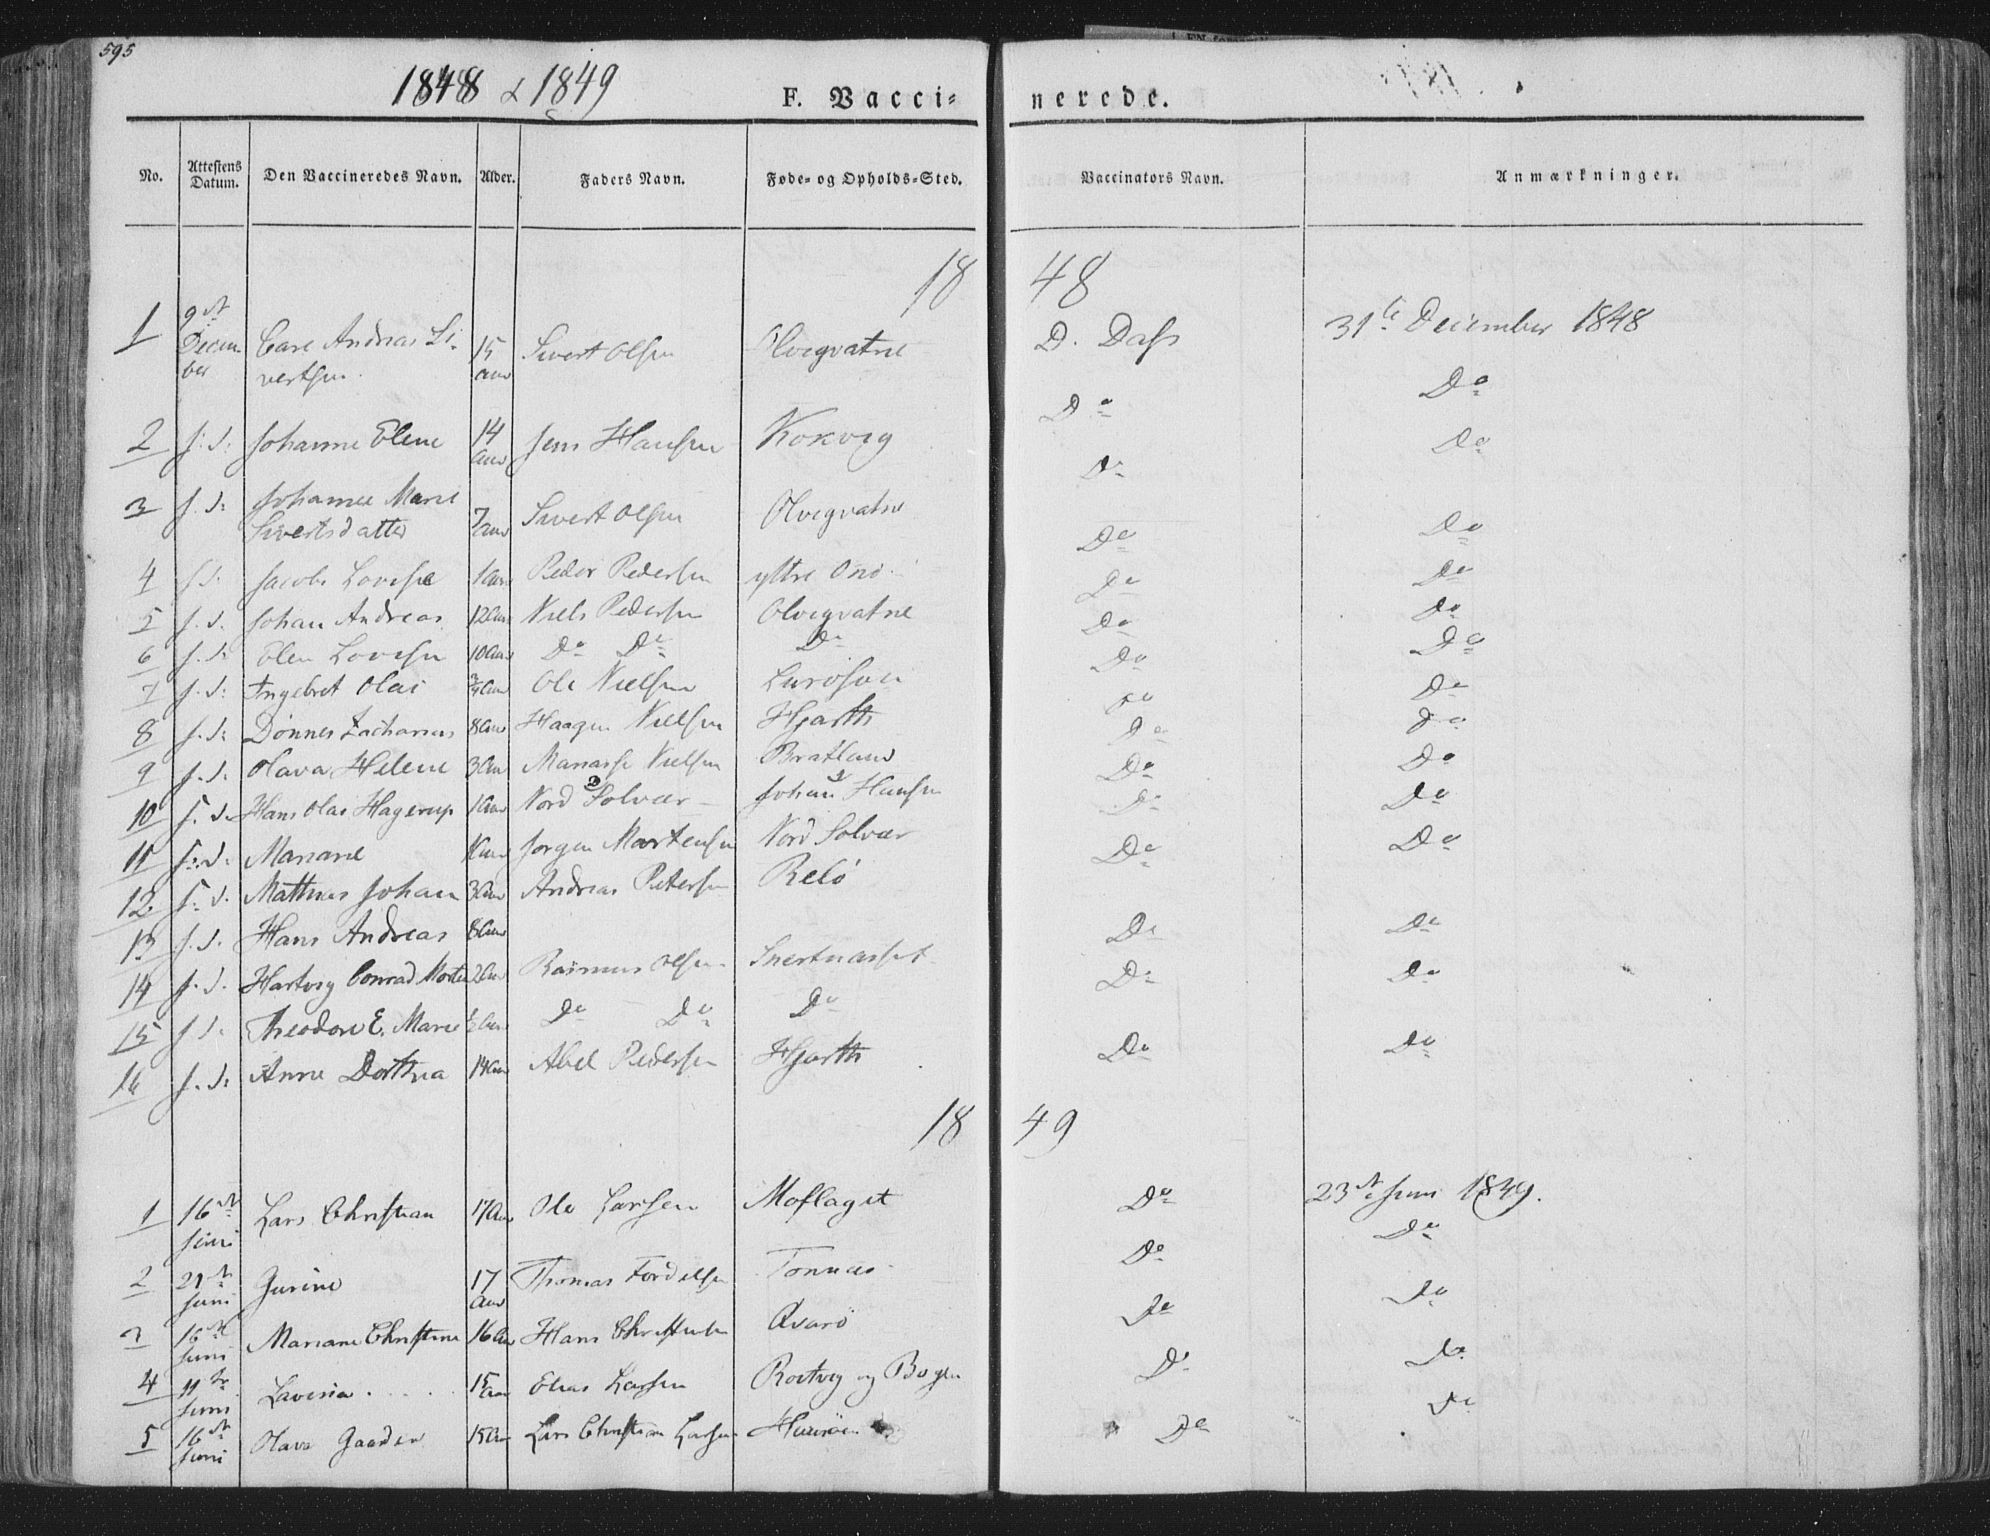 595
1848 & 1849
F. Vaccinerede.
No. Attestens Datum. Den Vaccineredes Navn. Alder. Faders Navn. Føde- og Opholds-Sted. Vaccinators Navn. Anmærkninger.
1848
1 9de December Carl Andreas Sivertsen 15 aar Sivert Olsen Olvigvatne D. Dass 31te December 1848
2 s. d. Johanne Elene 14 aar Jens Hansen Kokvig Do Do
3 s. d. Johanne Marie Sivertsdatter 7 aar Sivert Olsen Olvigvatne Do Do
4 s. d. Jacob Lovise 1 aar Peder Pedersen yttre Onö Do Do
5 s. d. Johan Andreas 12 aar Niels Pedersen Olvigvatne Do Do
6 s. d. Elen Lovise 10 aar Do Do Do Do Do
7 s. d. Ingebret Olai 3/4 aar Ole Nielsen Do Do
8 s. d. Dønnes Zacharias 8 aar Haagen Nielsen Hjarth Do Do
9 s. d. Olava Helene 3 aar Manasse Nielsen Bratland Do Do
10 s. d. Hans Olai Hagerup 1 aar Nord Solvær Johan Hansen Do Do
11 s. d. Mariane 1 aar Jørgen Mortensen Nord Solvær Do Do
12 s. d. Mathias Johan 3 aar Andreas Petersen Relö Do Do
13 s. d. Hans Andreas 8 aar Do Do
14 s. d. Hartvig Conrad Morten 2 aar Rasmus Olsen Do Do
15 s. d. Theodore E. Marie 1/2 aar Do Do Do
16 s. d. Anne Dorthea 14 aar Abel Pedersen Hjarth Do Do
1849
1 16de Juni Lars Christian 17 aar Ole Larsen Moflaget Do 23de Juni 1849.
2 21de Juni Gurine 17 aar Thomas Tonnes Do Do
3 16de Juni Mariane Christine 16 aar Hans Christensen Qvarö Do Do
4 11te Juni Lavina 15 aar Elias Larsen og Bogen Do Do
5 16de Juni Olava 15 aar Lars Christian Larsen Do Do